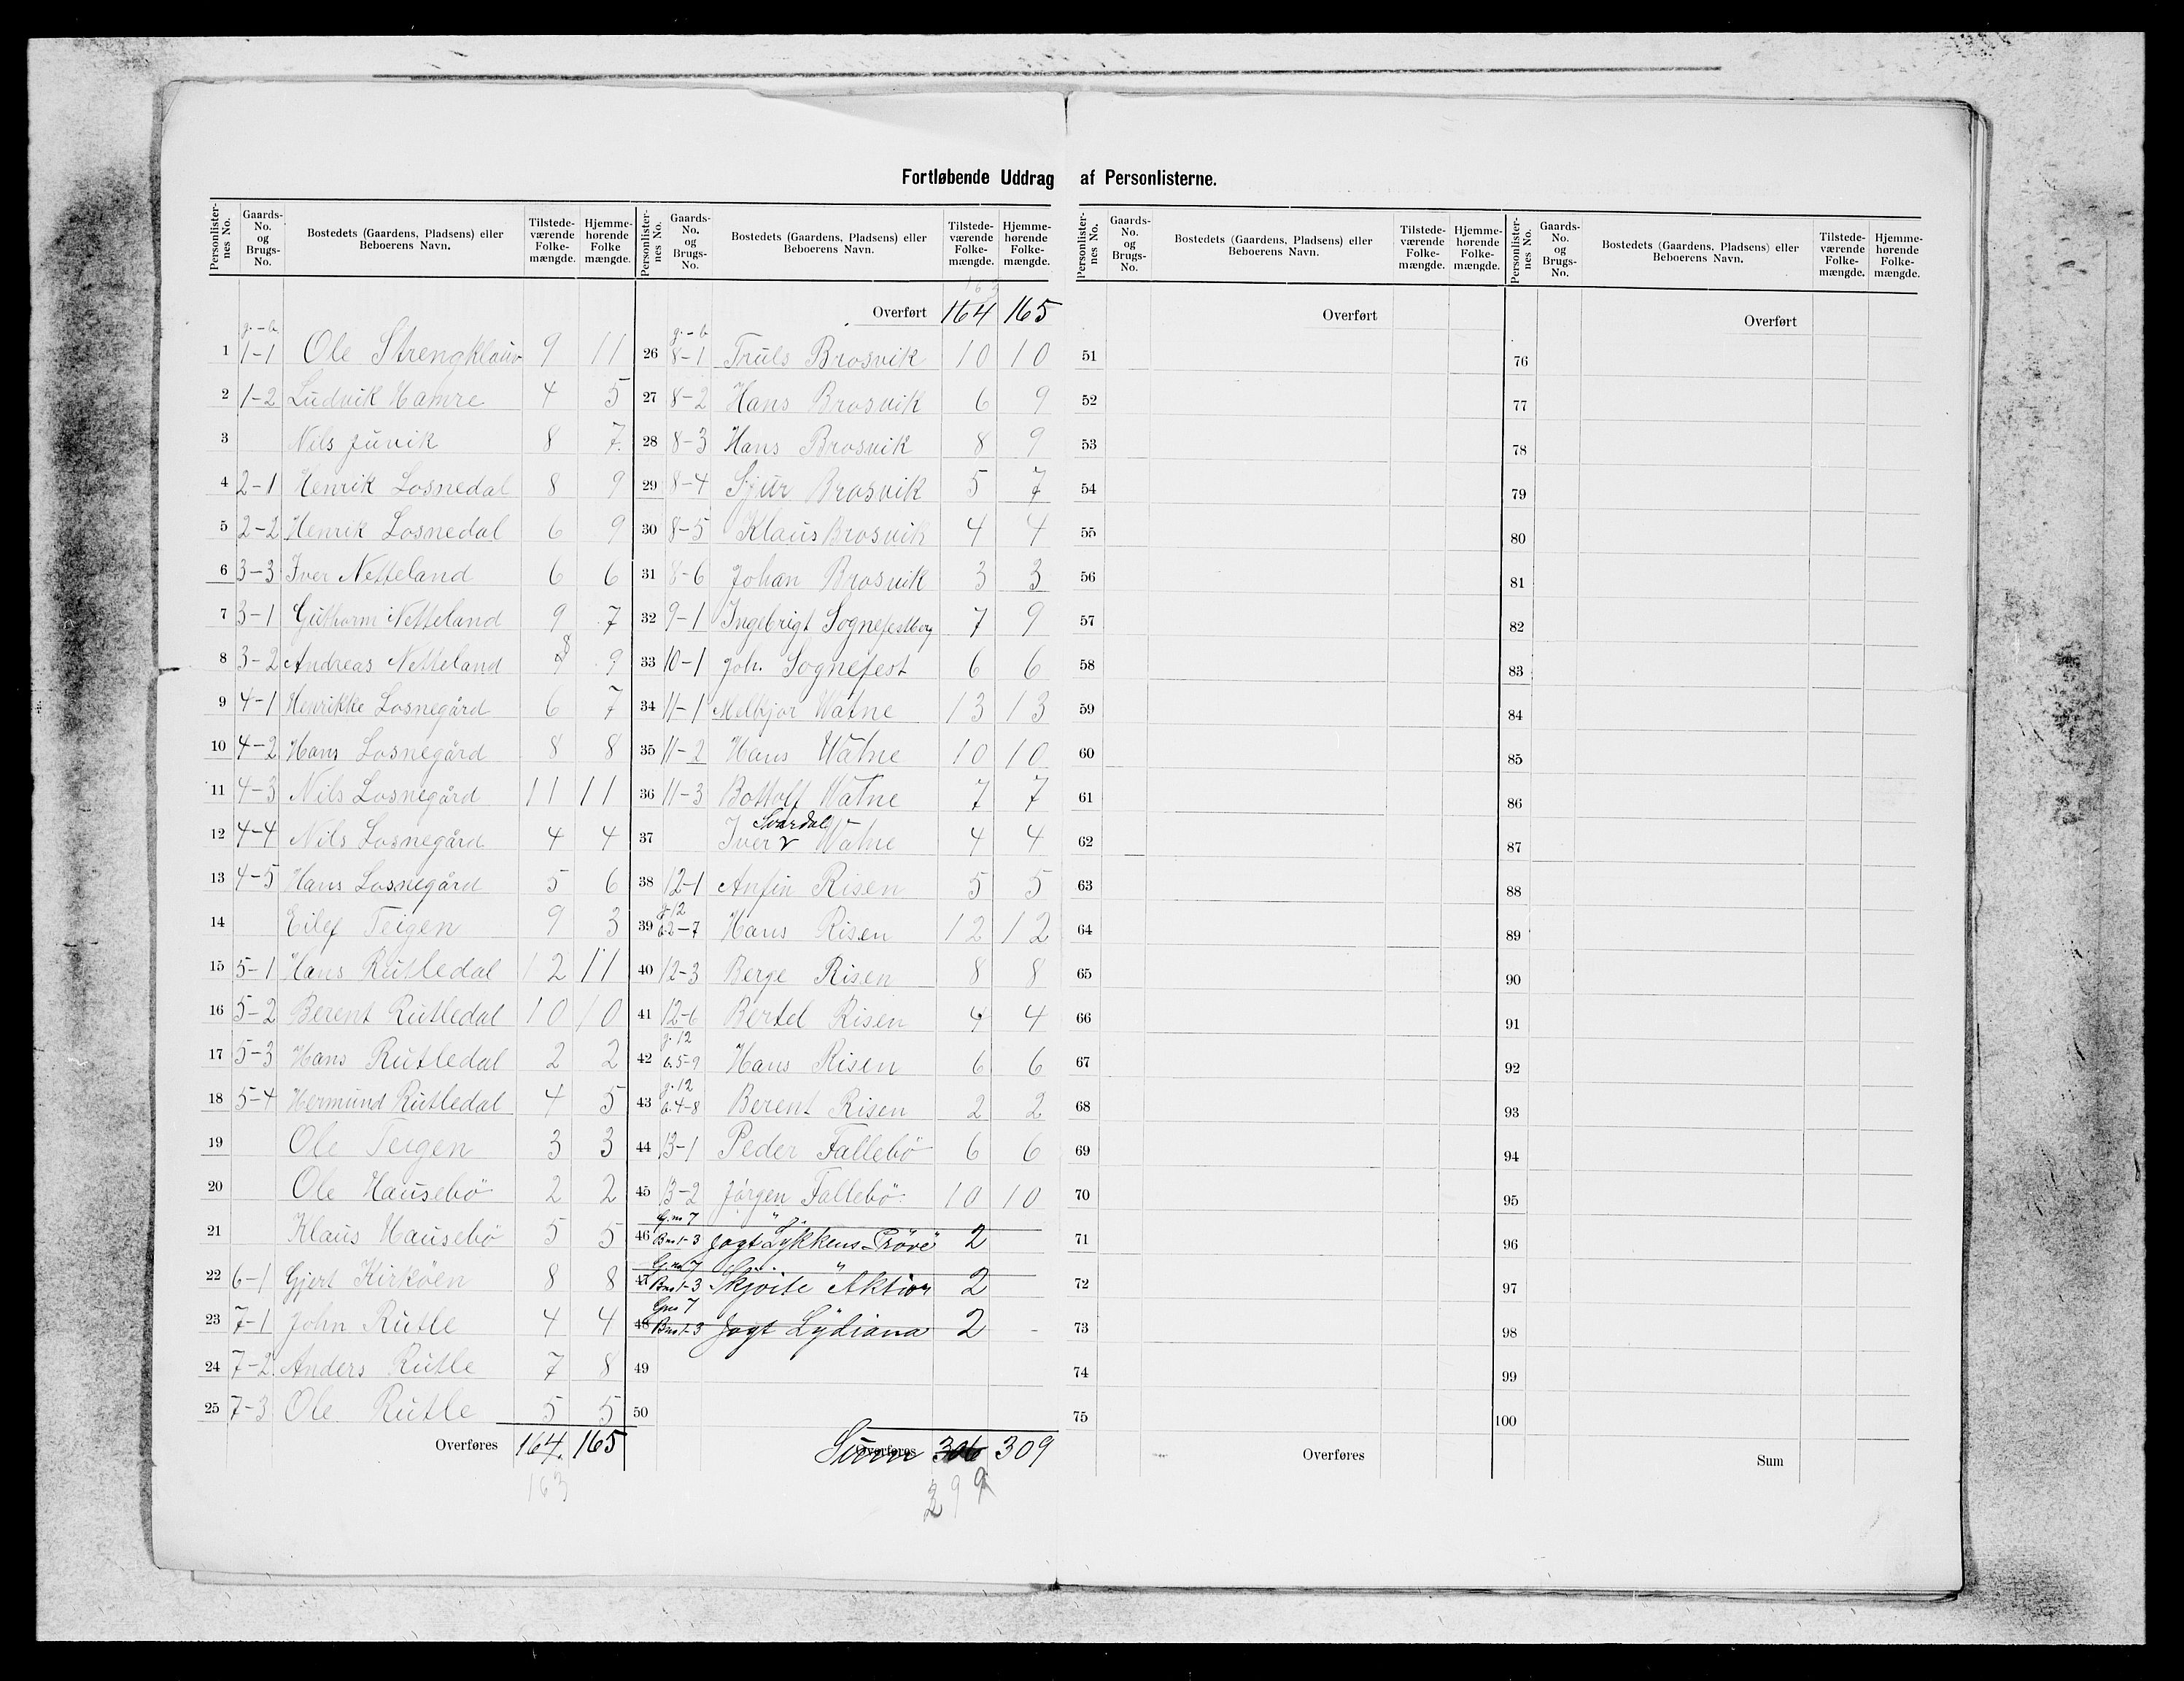 Fortløbende Uddrag af Personlisterne.
Personlister-nes No. Gaards-No. og Brugs-No. Bostedets (Gaardens, Pladsens) eller Beboerens Navn. Tilstede-værende Folke-mængde. Hjemme-hørende Folke mængde.
g. - b.
1 1-1 Ole Strengklauv 9 11
2 1-2 Ludvik Hamre 4 5
3 Nils Juvik 8 7
4 2-1 Henrik Losnedal 8 9
5 2-2 Henrik Losnedal 6 9
6 3-3 Iver Netteland 6 6
7 3-1 Guthorm Netteland 9 7
8 3-2 Andreas Netteland 8 9
9 4-1 Henrikke Losnegård 6 7
10 4-2 Hans Losnegård 8 8
11 4-3 Nils Losnegård 11 11
12 4-4 Nils Losnegård 4 4
13 4-5 Hans Losnegård 5 6
14 Eilef Teigen 9 3
15 5-1 Hans Rutledal 12 11
16 5-2 Berent Rutledal 10 10
17 5-3 Hans Rutledal 2 2
18 5-4 Hermund Rutledal 4 5
19 Ole Teigen 3 3
20 Ole Hausebö 2 2
21 Klaus Hausebö 5 5
22 6-1 Gjert Kirköen 8 8
23 7-1 John Rutle 4 4
24 7-2 Anders Rutle 7 8
25 7-3 Ole Rutle 5 5
Overføres 164. 165
163
Personlister-nes No. Gaards-No. og Brugs-No. Bostedets (Gaardens, Pladsens) eller Beboerens Navn. Tilstede-værende Folke-mængde. Hjemme-hørende Folke-mængde.
163
Overført 164 165
g. - b
26 8-1 Truls Brosvik 10 10
27 8-2 Hans Brosvik 6 9
28 8-3 Hans Brosvik 8 9
29 8-4 Sjur Brosvik 5 7
30 8-5 Klaus Brosvik 4 4
31 8-6 Johan Brosvik 3 3
32 9-1 Ingebrigt Sognefestberg 7 9
33 10-1 Joh. Sognefest 6 6
34 11-1 Melkjor Watne 13 13
35 11-2 Hans Watne 10 10
36 11-3 Bottolf Watne 7 7
Svardal
37 Iver Watne 4 4
38 12-1 Anfin Risen 5 5
g. 12
39 b. 2-7 Hans Risen 12 12
40 12-3 Berge Risen 8 8
41 12-6 Bertel Risen 4 4
g. 12
42 b. 5-9 Hans Risen 6 6
g. 12
43 b. 4-8 Berent Risen 2 2
44 13-1 Peder Fallebö 6 6
45 13-2 Jörgen Fallebö 10 10
G. no 7
46 Bno 1-3 Jagt "Lykkens Pröve" 2
G. no 7
47 Bno 1-3 Skjöite "Aktiv" 2
Gno 7
48 Bno 1-3 Jagt Lydiana 2 -
49
50
Overføres
Sum 306 309
299
Personlister-nes No. Gaards-No. og Brugs-No. Bostedets (Gaardens, Pladsens) eller Beboerens Navn. Tilstede-værende Folke-mængde. Hjemme-hørende Folke-mængde.
Overført
51
52
53
54
55
56
57
58
59
60
61
62
63
64
65
66
67
68
69
70
71
72
73
74
75
Overføres
Personlister-nes No. Gaards-No. og Brugs-No. Bostedets (Gaardens, Pladsens) eller Beboerens Navn. Tilstede-værende Folke-mængde. Hjemme-hørende Folke-mængde.
Overført
76
77
78
79
80
81
82
83
84
85
86
87
88
89
90
91
92
93
94
95
96
97
98
99
100
Sum